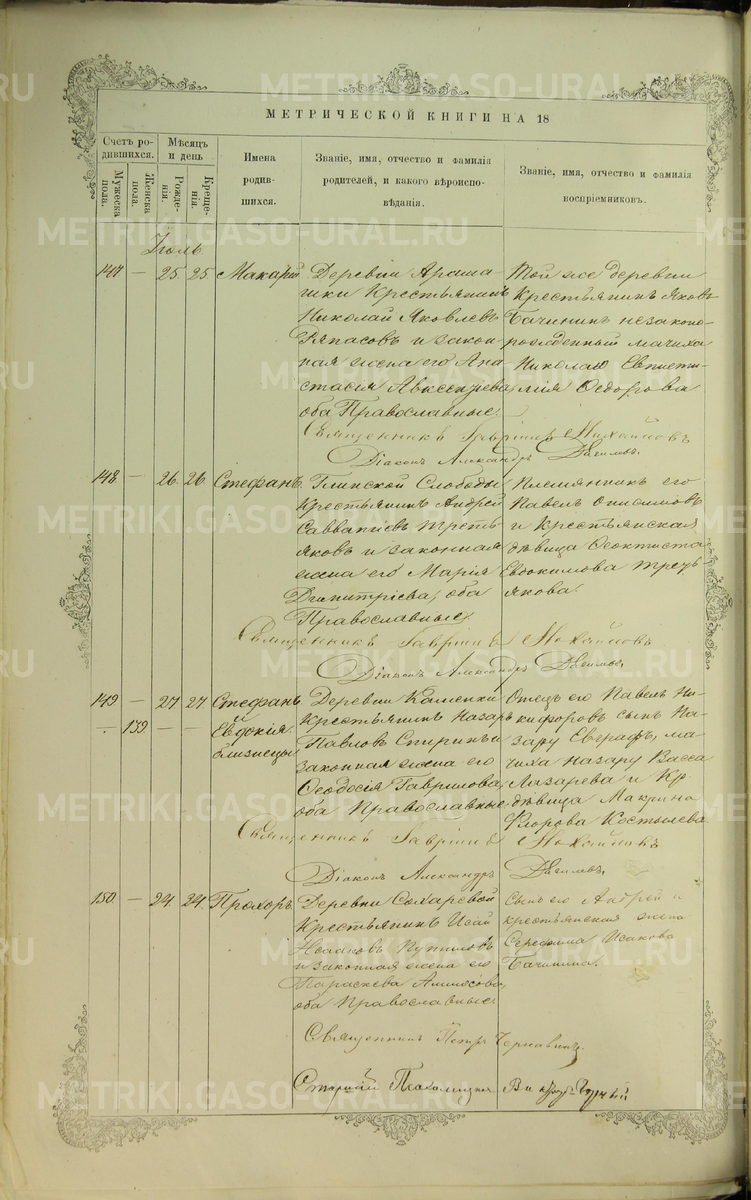 МЕТРИЧЕСКОЙ КНИГИ НА 18
Счетъ родившихся.
Мужеска пола.
Женска пола.
Мѣсяцъ и день
Рожденія.
Крещенія.
Имена родившихся.
Званіе, имя, отчество и фамилія родителей, и какого вѣроисповѣданія.
Званіе, имя, отчество и фамилія воспріемниковъ.
Іюль
147 — 25. 25. Макарій
Деревни
чики Крестьянинъ
Николай Яковлевъ
и закон-
ная жена его Ана-
стасія
оба Православные.
Той же деревни
Крестьянинъ Яковъ
Бачининъ незаконо-
рожденный мачиха
Николаю Евписти-
мія Ѳедорова
Священникъ Гавріилъ
Діаконъ Александръ
148 — 26. 26. Стефанъ.
Глинской Слободы
Крестьянинъ Андрей
Савватіевъ Треть-
яковъ и законная
жена его Марія
Димитріева, оба
Православные.
Племянникъ его
Павелъ Онисимовъ
и Крестьянская
дѣвица Ѳеоктиста
Евдокимова Треть-
якова.
Священникъ Гавріилъ
Діаконъ Александръ
149 — 27. 27. Стефанъ
и
— 139 — — Евдокія.
близнецы
Деревни Каменки
Крестьянинъ Назаръ
Павловъ Спиринъ и
законная жена его
Ѳеодосія Гаврилова,
оба Православные
Отецъ его Павелъ Ни-
кифоровъ сынъ На-
зару Евграфъ, ма-
чиха Назару Васса
Лазарева и Кр.
дѣвица Макрина
Флорова Костылева
Священникъ Гавріилъ
Діаконъ Александръ
150 — 24. 24. Прохоръ.
Деревни Сохаревой
Крестьянинъ Исай
Исааковъ Путиловъ
и законная жена его
Параскева
оба Православные.
Сынъ его Андрей и
крестьянская жена
Серафима Исакова
Бачинина.
Священникъ Петръ
METRIKI.GASO-URAL.RU